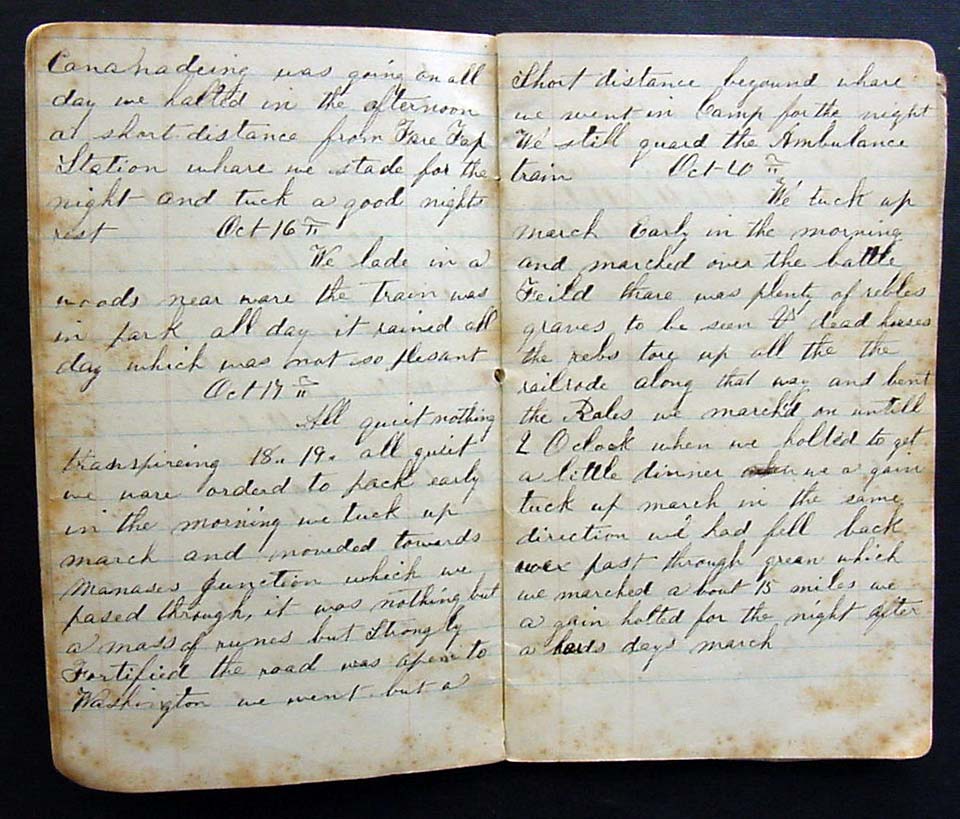 Cananadeing was going on all
day we halted in the afternoon
a short distance from Fare Fax
Station whare we stade for the
night and tuck a good nights
rest Oct 16th
We lade in a
woods near ware the train was
in park all day it rained all
day which was not so plesant
Oct 17th
All quiet nothing
transpireing 18. 19. all quiet
we ware orderd to pack early
in the morning we tuck up
march and moveded towards
Manases Junction which we
pased through, it was nothing but
a mass of runes but Strongly
Fortified the road was open to
Washington we went but a
Short distance beyound whare
we went in Camp for the night
We still guard the Ambulance
train Oct 20th
We tuck up
march Early in the morning
and marched over the battle
Feild thare was plenty of rebles
graves to be seen & dead horses
the rebs torg up all the the
railrode along that way and bent
the Rales we march'd on untill
2 Oclock when we holted to get
a little dinner we a gain
tuck up march in the same
direction we had fell back
past through green which
we marched a bout 15 miles we
a gain holted for the night after
a hards days march